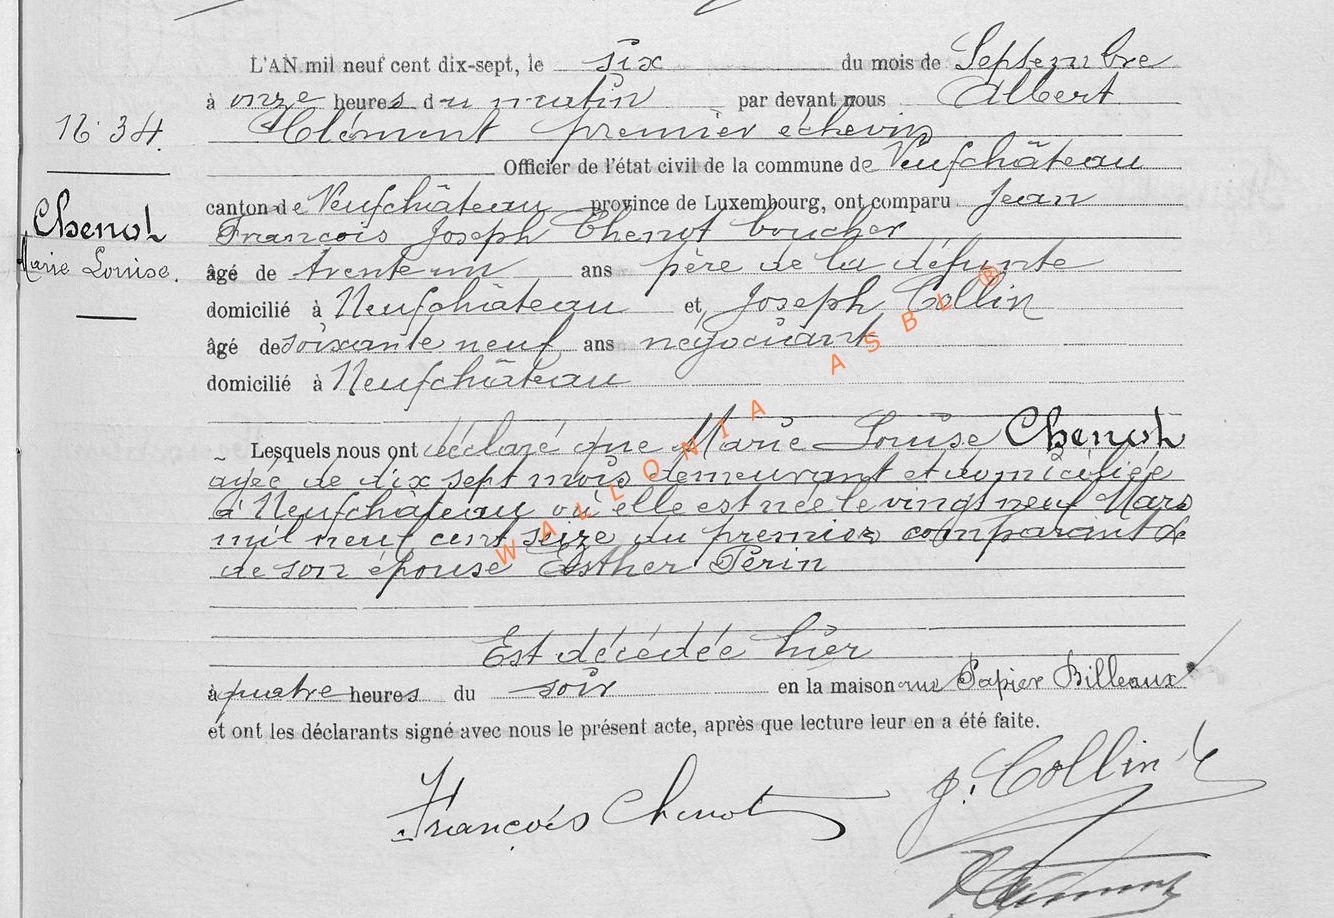 L'AN mil neuf cent dix-sept, le six du mois de Septembre
à onze heures du matin par devant nous Albert
Clément premier échevin
Officier de l'état civil de la commune de Neufchâteau
canton de Neufchâteau province de Luxembourg, ont comparu Jean
François Joseph Chenot boucher
âgé de trente un ans père de la défunte
domicilié à Neufchâteau et Joseph Collin
âgé de soixante neuf ans négociant
domicilié à Neufchâteau
Lesquels nous ont déclaré que Marie Louise Chenot
agée de dix sept mois demeurant et domiciliée
à Neufchâteau où elle est née le vingt neuf Mars
mil neuf cent seize du premier comparant &
de son épouse Esther Périn
Est décédée hier
à quatre heures du soir en la maison rue Papier Billeaux
et ont les déclarants signé avec nous le présent acte, après que lecture leur en a été faite.
François Chenot
J. Collin
Clément
N. 34.
Chenot
Marie Louise.
WALLONIA ASBL ®